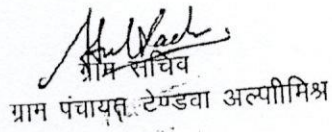 ग्राम सचिव
ग्राम पंचायत टेण्डवा अल्पीमिश्र